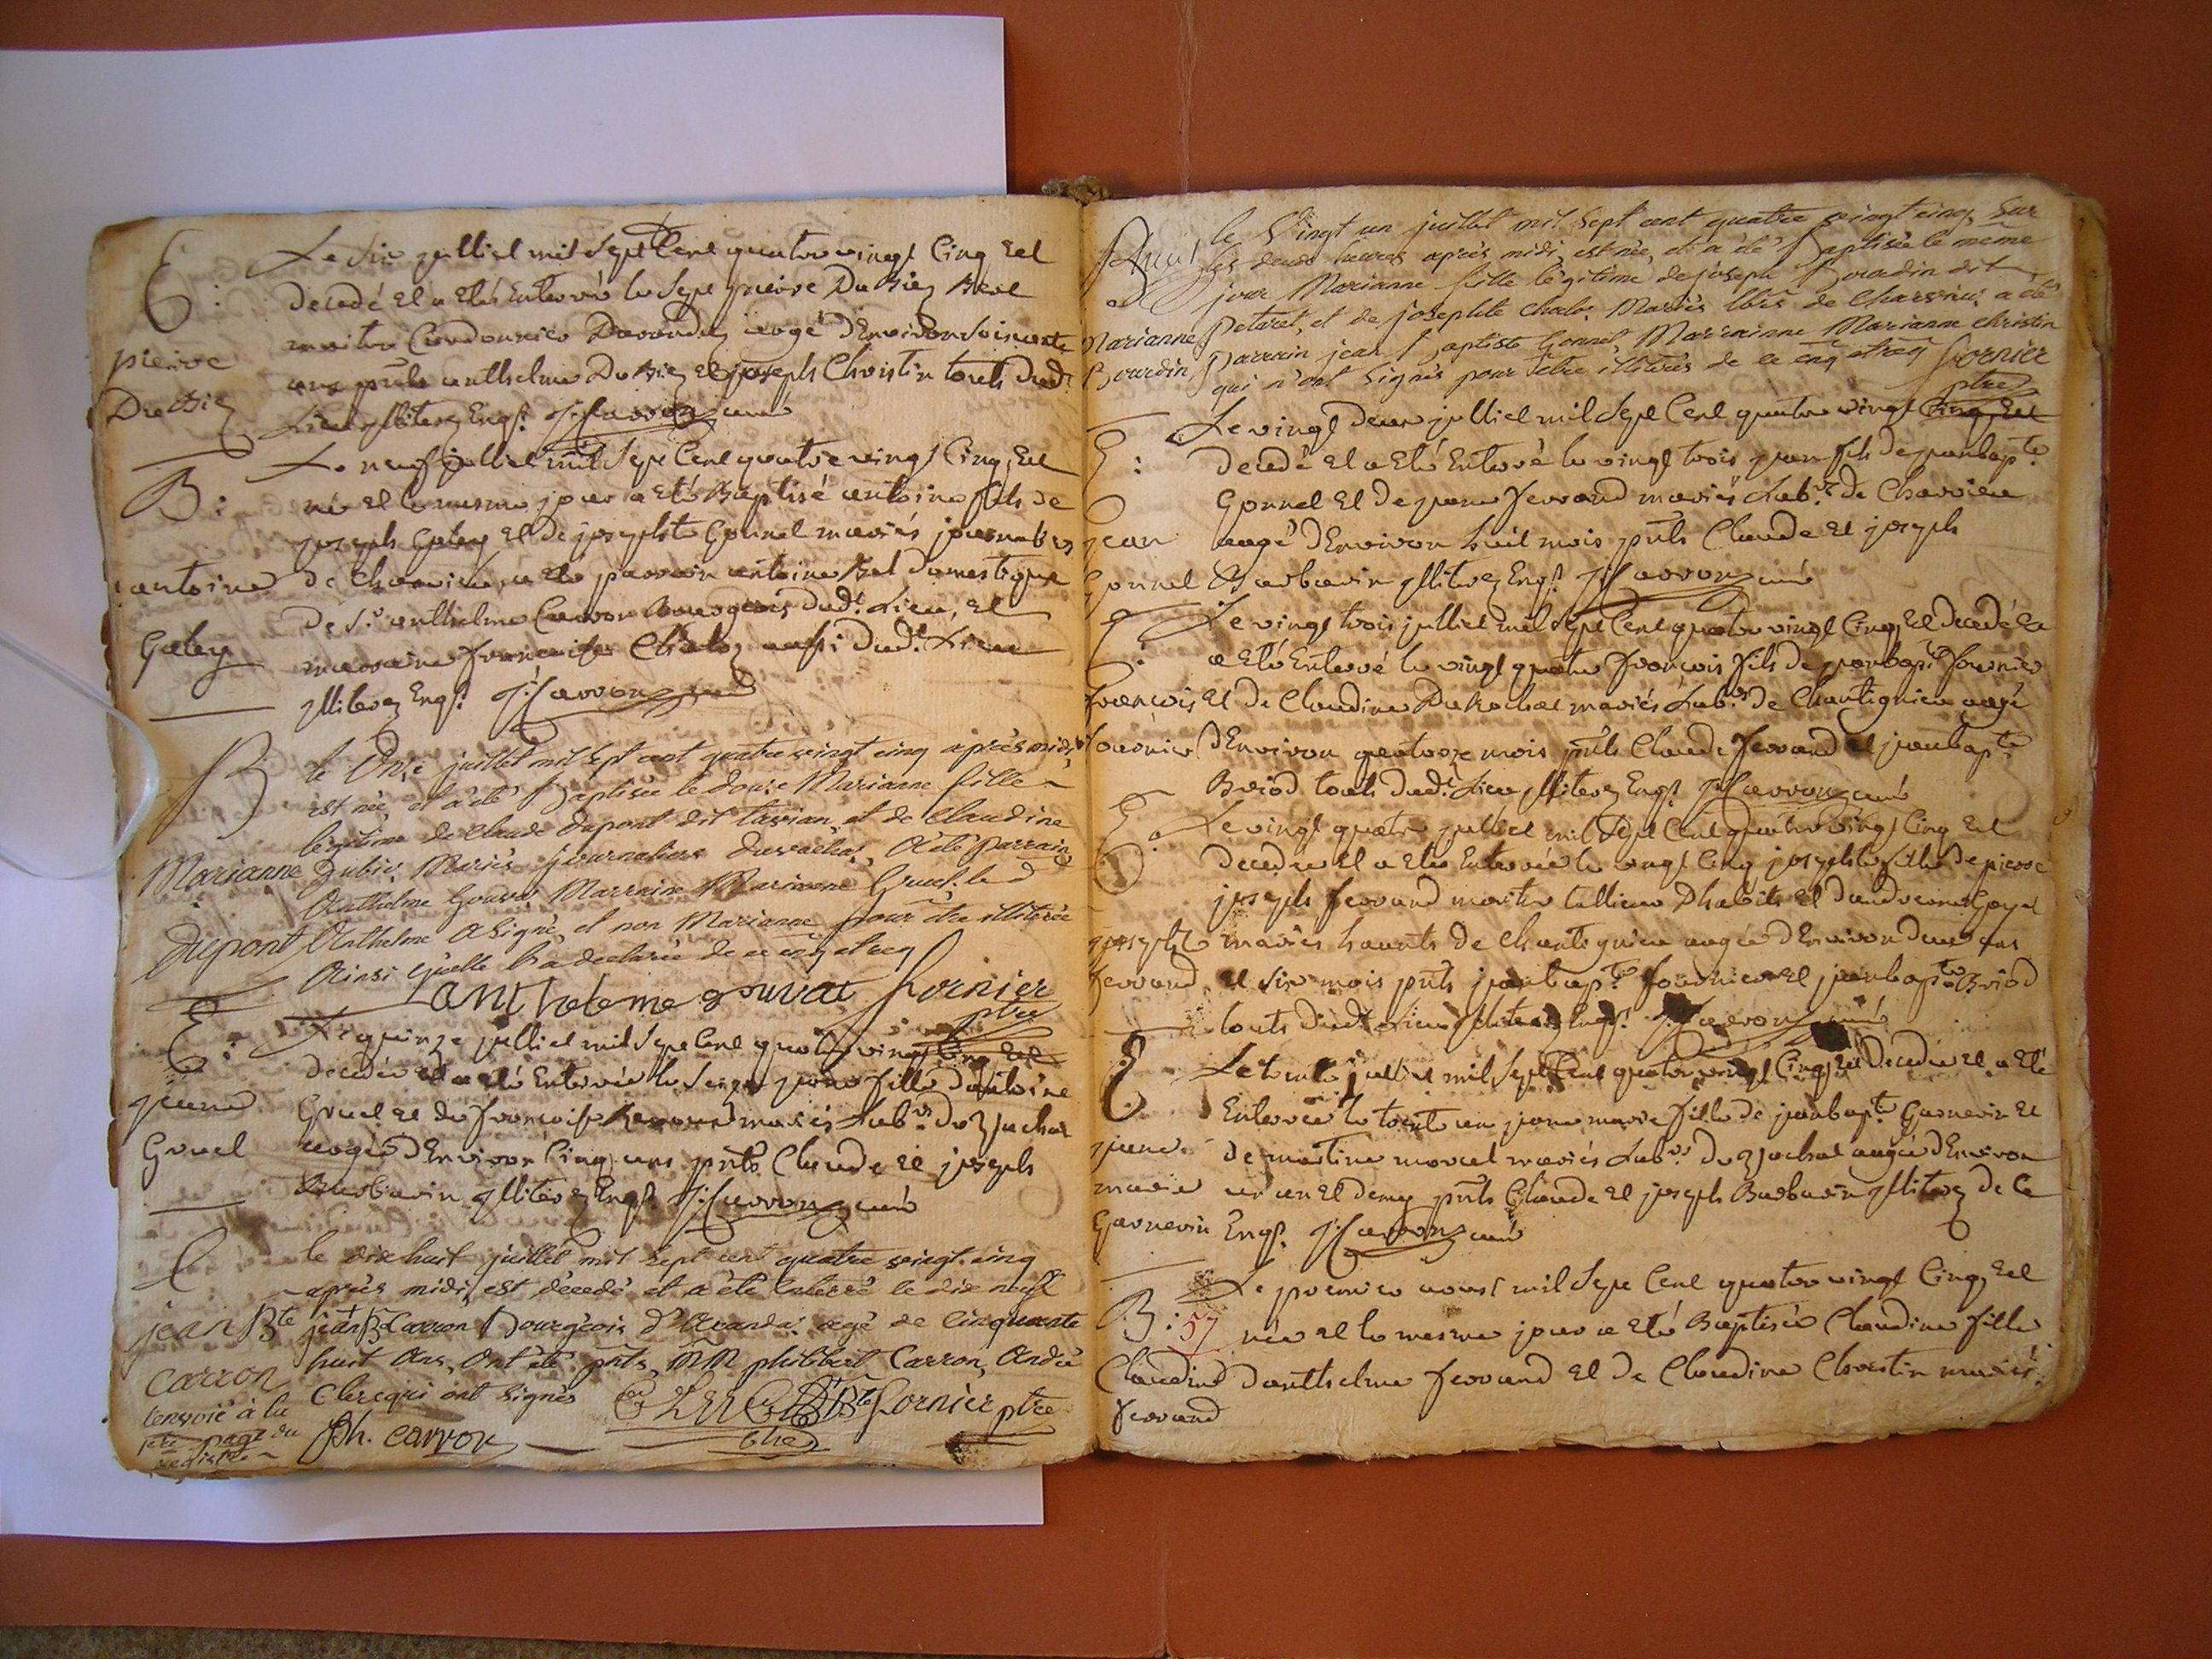 E :
pierre
Du Biez
Le Six julliet mil Sept Cent quatre vingt Cinq Est
decedé Et a Eté Enterré le Sept pierre Du Biez
maitre Cordonnier Daranda aagé d'Environ Soixante
ans pnts anthelme Du Biez Et joseph Christin touts dud:
Lieu jlliterez Enqs: J: Carron curé
B :
antoine
Galey
Le neuf julliet mil Sept Cent quatre vingt Cinq, Est
né Et le mesme jour a Eté Baptisé antoine fils de
joseph Galey Et de josephte Gonnet mariés journaliers
de Charvieu, a Eté parrain antoine Bal domestique
de S.r anthelme Carron Bourgeois dud: Lieu, Et
marraine françoise Chaloz aussi dud: Lieu
jlliterez Enqs: J: Carron curé
B
Marianne
Dupont
le Onze juillet mil sept cent quatre vingt cinq après midi,
est née, et a été Baptisée le douze Marianne fille
legitime de Claude dupont dit tavian, et de Claudine
dubiez Mariés journaliers durachat, A été parrain
Anthelme Gouvat Marraine Marianne Gruel, led
Anthelme a signé, et non Marianne pour être illiterée
Ainsi qu'elle l'a declarée de ce enq et req
antheleme gouvat Fornier
ptre
E :
jeane
Gruel
Le quinze julliet mil Sept Cent quatre vingt Cinq Est
decedée et a eté Enterrée le Seize jeane fille d'antoine
Gruel Et de françoise mariés Lab.rs du Rachat
aagée d'Environ Cinq ans pnts Claude Et joseph
Barbarin jlliterez Enqs: J: Carron curé
E
jean Bte
Carron
renvoié à la
page du
registre
le dix huit juillet mil Sept cent quatre vingt cinq
après midi, est décedé et a été Enterré le dix neuf
jean B Carron Bourgeois d'Aranda agé de Cinquante
huit Ans, Ont été pnts MM philibert Carron, André
Clerc qui ont signés CLERC Fornier ptre
Ph. carron
Marianne
Bourdin
le Vingt un juillet mil Sept cent quatre vingt cinq, Sur
les deux heures après midi, est née, et a été Baptisée le meme
jour Marianne fille légitime de joseph Bourdin dit
Petaret, et de josephte Chaloz Mariés lbrs de Charvieu a été
parrain jean Baptiste Gonnet, Marrainne Marianne Christin
qui n'ont Signés pour être illiterés de ce enq et req Fornier
ptre
E :
jean
Gonnet
Le vingt deux julliet mil Sept Cent quatre vingt Cinq, Est
decedé Et a Eté Enterré le vingt trois jean fils de jean bapte
Gonnet Et de jeane ferrand mariés Lab.rs de Charvieu
aagé d'Environ huit mois pnts Claude Et joseph
Barbarin jlliterez Enqs: J: Carron curé
E :
françois
fournier
Le vingt trois julliet mil Sept Cent quatre vingt Cinq, Est decedé Et
a Eté Enterré le vingt quatre françois fils de jean bapte fournier
Et de Claudine Du Rochat mariés Lab.rs de Chantignieu aagé
d'Environ quatorze mois pnts Claude ferrand Et jean bapte
Briod touts dud: Lieu jlliterez Enqs: J: Carron curé
E :
josephte
ferrand
Le vingt quatre julliet mil Sept Cent quatre vingt Cinq Est
decedée Et a Eté Enterrée le vingt Cinq josephte fille de pierre
joseph ferrand maitre tallieur D'habits Et d'andreanne Goyet
mariés haunts de Chantignieu aagée d'Environ deux ans
Et Six mois pnts jean bapte fournier Et jean bapte Briod
touts dud: Lieu jlliterez Enqs: J: Carron curé
E
jeane
marie
Garnerin
Le trente julliet mil Sept Cent quatre vingt Cinq, Est Decedée Et a Eté
Enterrée le trente un jeane marie fille de jean bapte Garnerin Et
de martine morcel mariés Lab.rs du Rachat aagée d'Environ
un an Et demy pnts Claude Et joseph Barbarin jlliterez de Ce
Enqs: J: Carron curé
B : 57
Claudine
ferrand
Le premier aoust mil Sept Cent quatre vingt Cinq, Est
née Et le mesme jour a Eté Baptisée Claudine fille
d'anthelme ferrand Et de Claudine Christin mariés